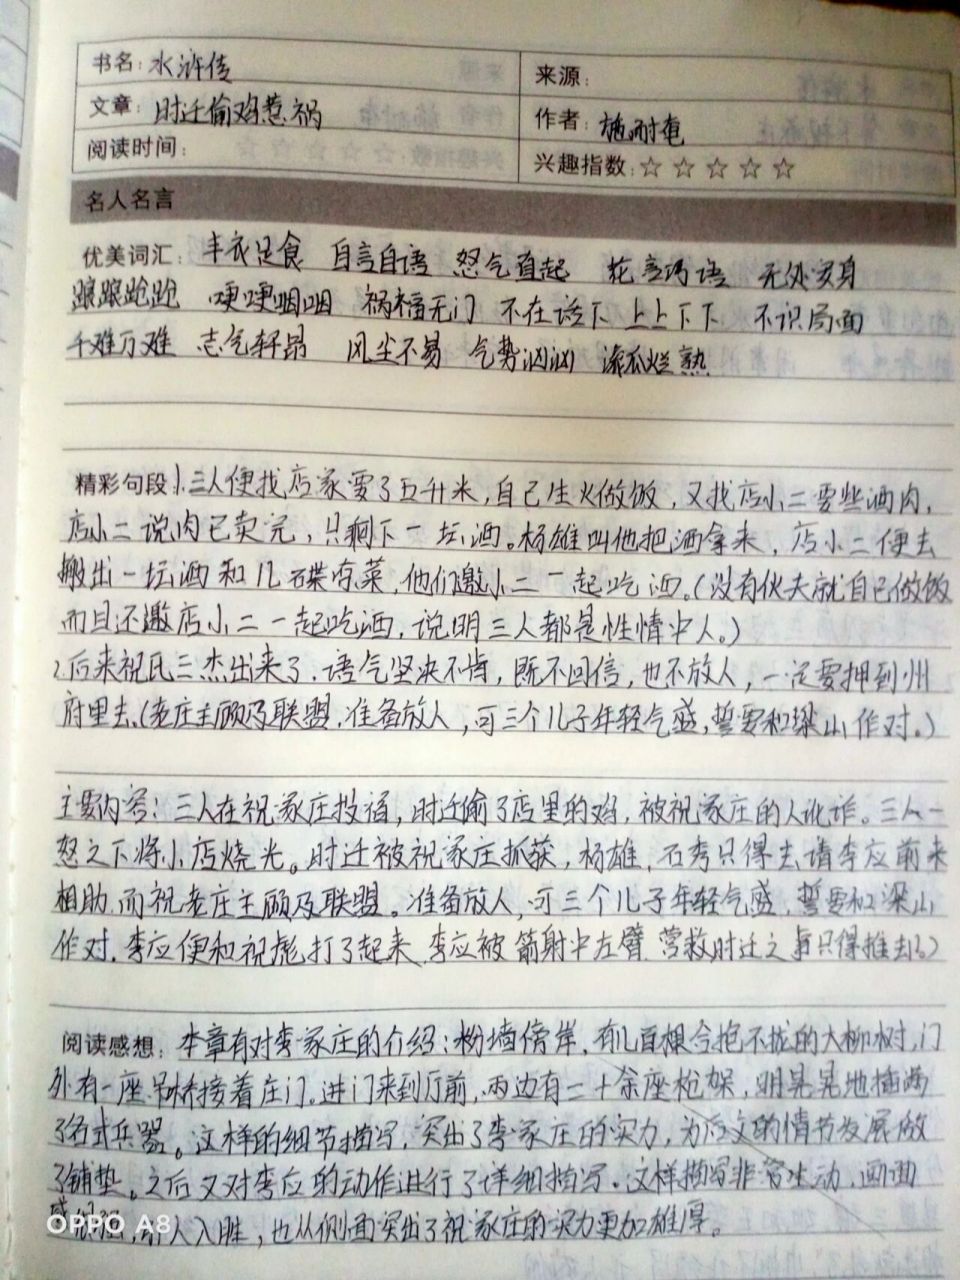 书名: 水浒传 来源:
文章: 时迁偷鸡惹祸 作者: 施耐庵
阅读时间: 兴趣指数: ☆ ☆ ☆ ☆ ☆
名人名言
优美词汇: 丰衣足食 自言自语 怒气直起 花言巧语 无处安身
踉踉跄跄 哽哽咽咽 祸福无门 不在话下 上上下下 不识局面
千难万难 志气轩昂 风尘不易 气势汹汹 滚瓜烂熟
精彩句段 1.三人便找店家要了五升米,自己生火做饭,又找店小二要些酒肉,
店小二说肉已卖完,只剩下一坛酒。杨雄叫他把酒拿来,店小二便去
搬出一坛酒和几碟有菜,他们邀小二一起吃酒。(没有伙夫就自己做饭
而且还邀店小二一起吃酒,说明三人都是性情中人。)
2.后来祝氏三杰出来了,语气坚决不悔,既不回信,也不放人,一定要押到州
府里去。(老庄主顾及联盟,准备放人,可三个儿子年轻气盛,誓要和梁山作对。)
主要内容: 三人在祝家庄投宿,时迁偷了店里的鸡,被祝家庄的人讹诈。三人一
怒之下将小店烧光。时迁被祝家庄抓获,杨雄,石秀只得去请李应前来
相助,而祝老庄主顾及联盟。准备放人,可三个儿子年轻气盛,誓要和梁山
作对,李应便和祝彪打了起来,李应被箭射中左臂,营救时迁之事只得推去。)
阅读感想: 本章有对李家庄的介绍:粉墙傍岸,有几百根合抱不拢的大柳树,门
外有一座吊桥接着庄门。进门来到厅前,两边有二十余座枪架,明晃晃地插两
了各式兵器。这样的细节描写,突出了李家庄的实力,为后文的情节发展做
了铺垫。之后又对李应的动作进行了详细描写。这样描写非常生动,画面
感 引人入胜,也从侧面突出了祝家庄的实力更加雄厚。
OPPO A8